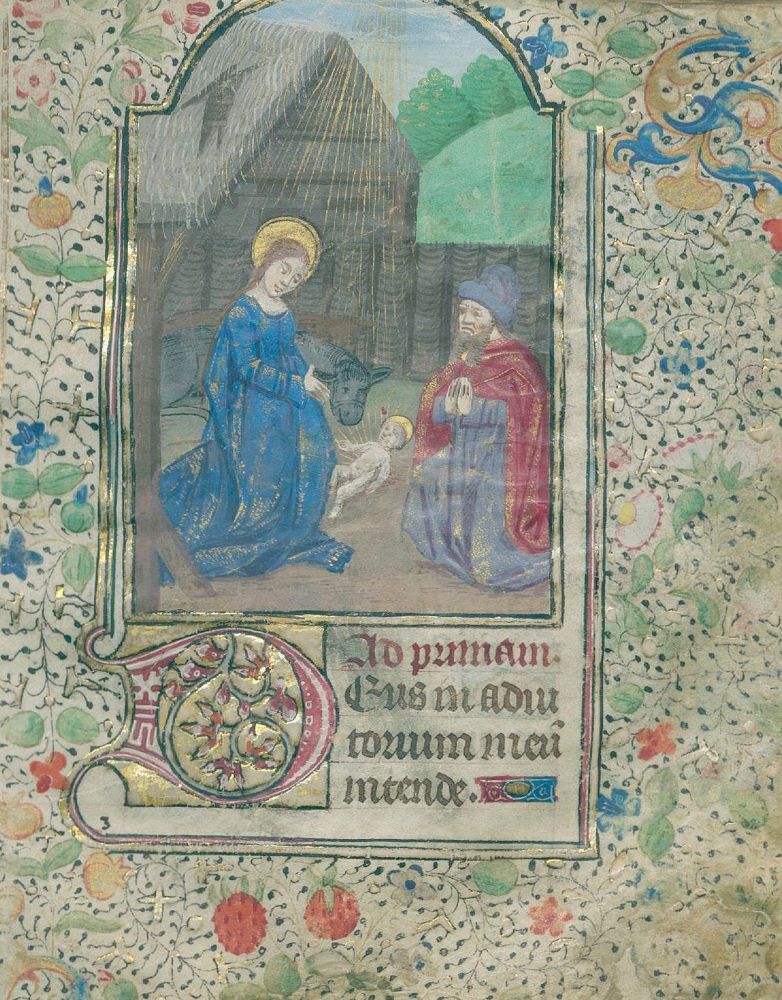 Ad primam.
Deus in adiu
torium meũ
intende.
3